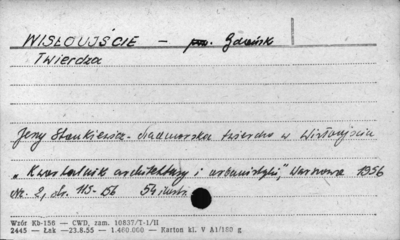 WISŁOUJŚCIE – pow. Gdańsk
Twierdza
Jerzy Stankiewicz - Nadmorska twierdza w Wisłoujściu
„Kwartalnik architektury i urbanistyki", Warszawa 1956
nr. 2, str. 115-156 54 ilustr.
Wzór Kb-156 — CWD, zam. 10837/T-1/II
2445 — Łsk —23.8.55 — 1.400.000 — Karton kl. V A1/180 g